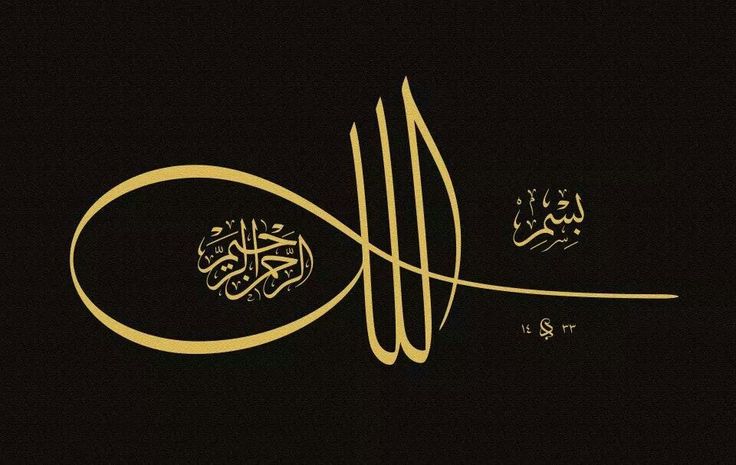 بِسْمِ
الله
الرَّحْمنِ الرَّحِيْمِ
١٤ ٣٣